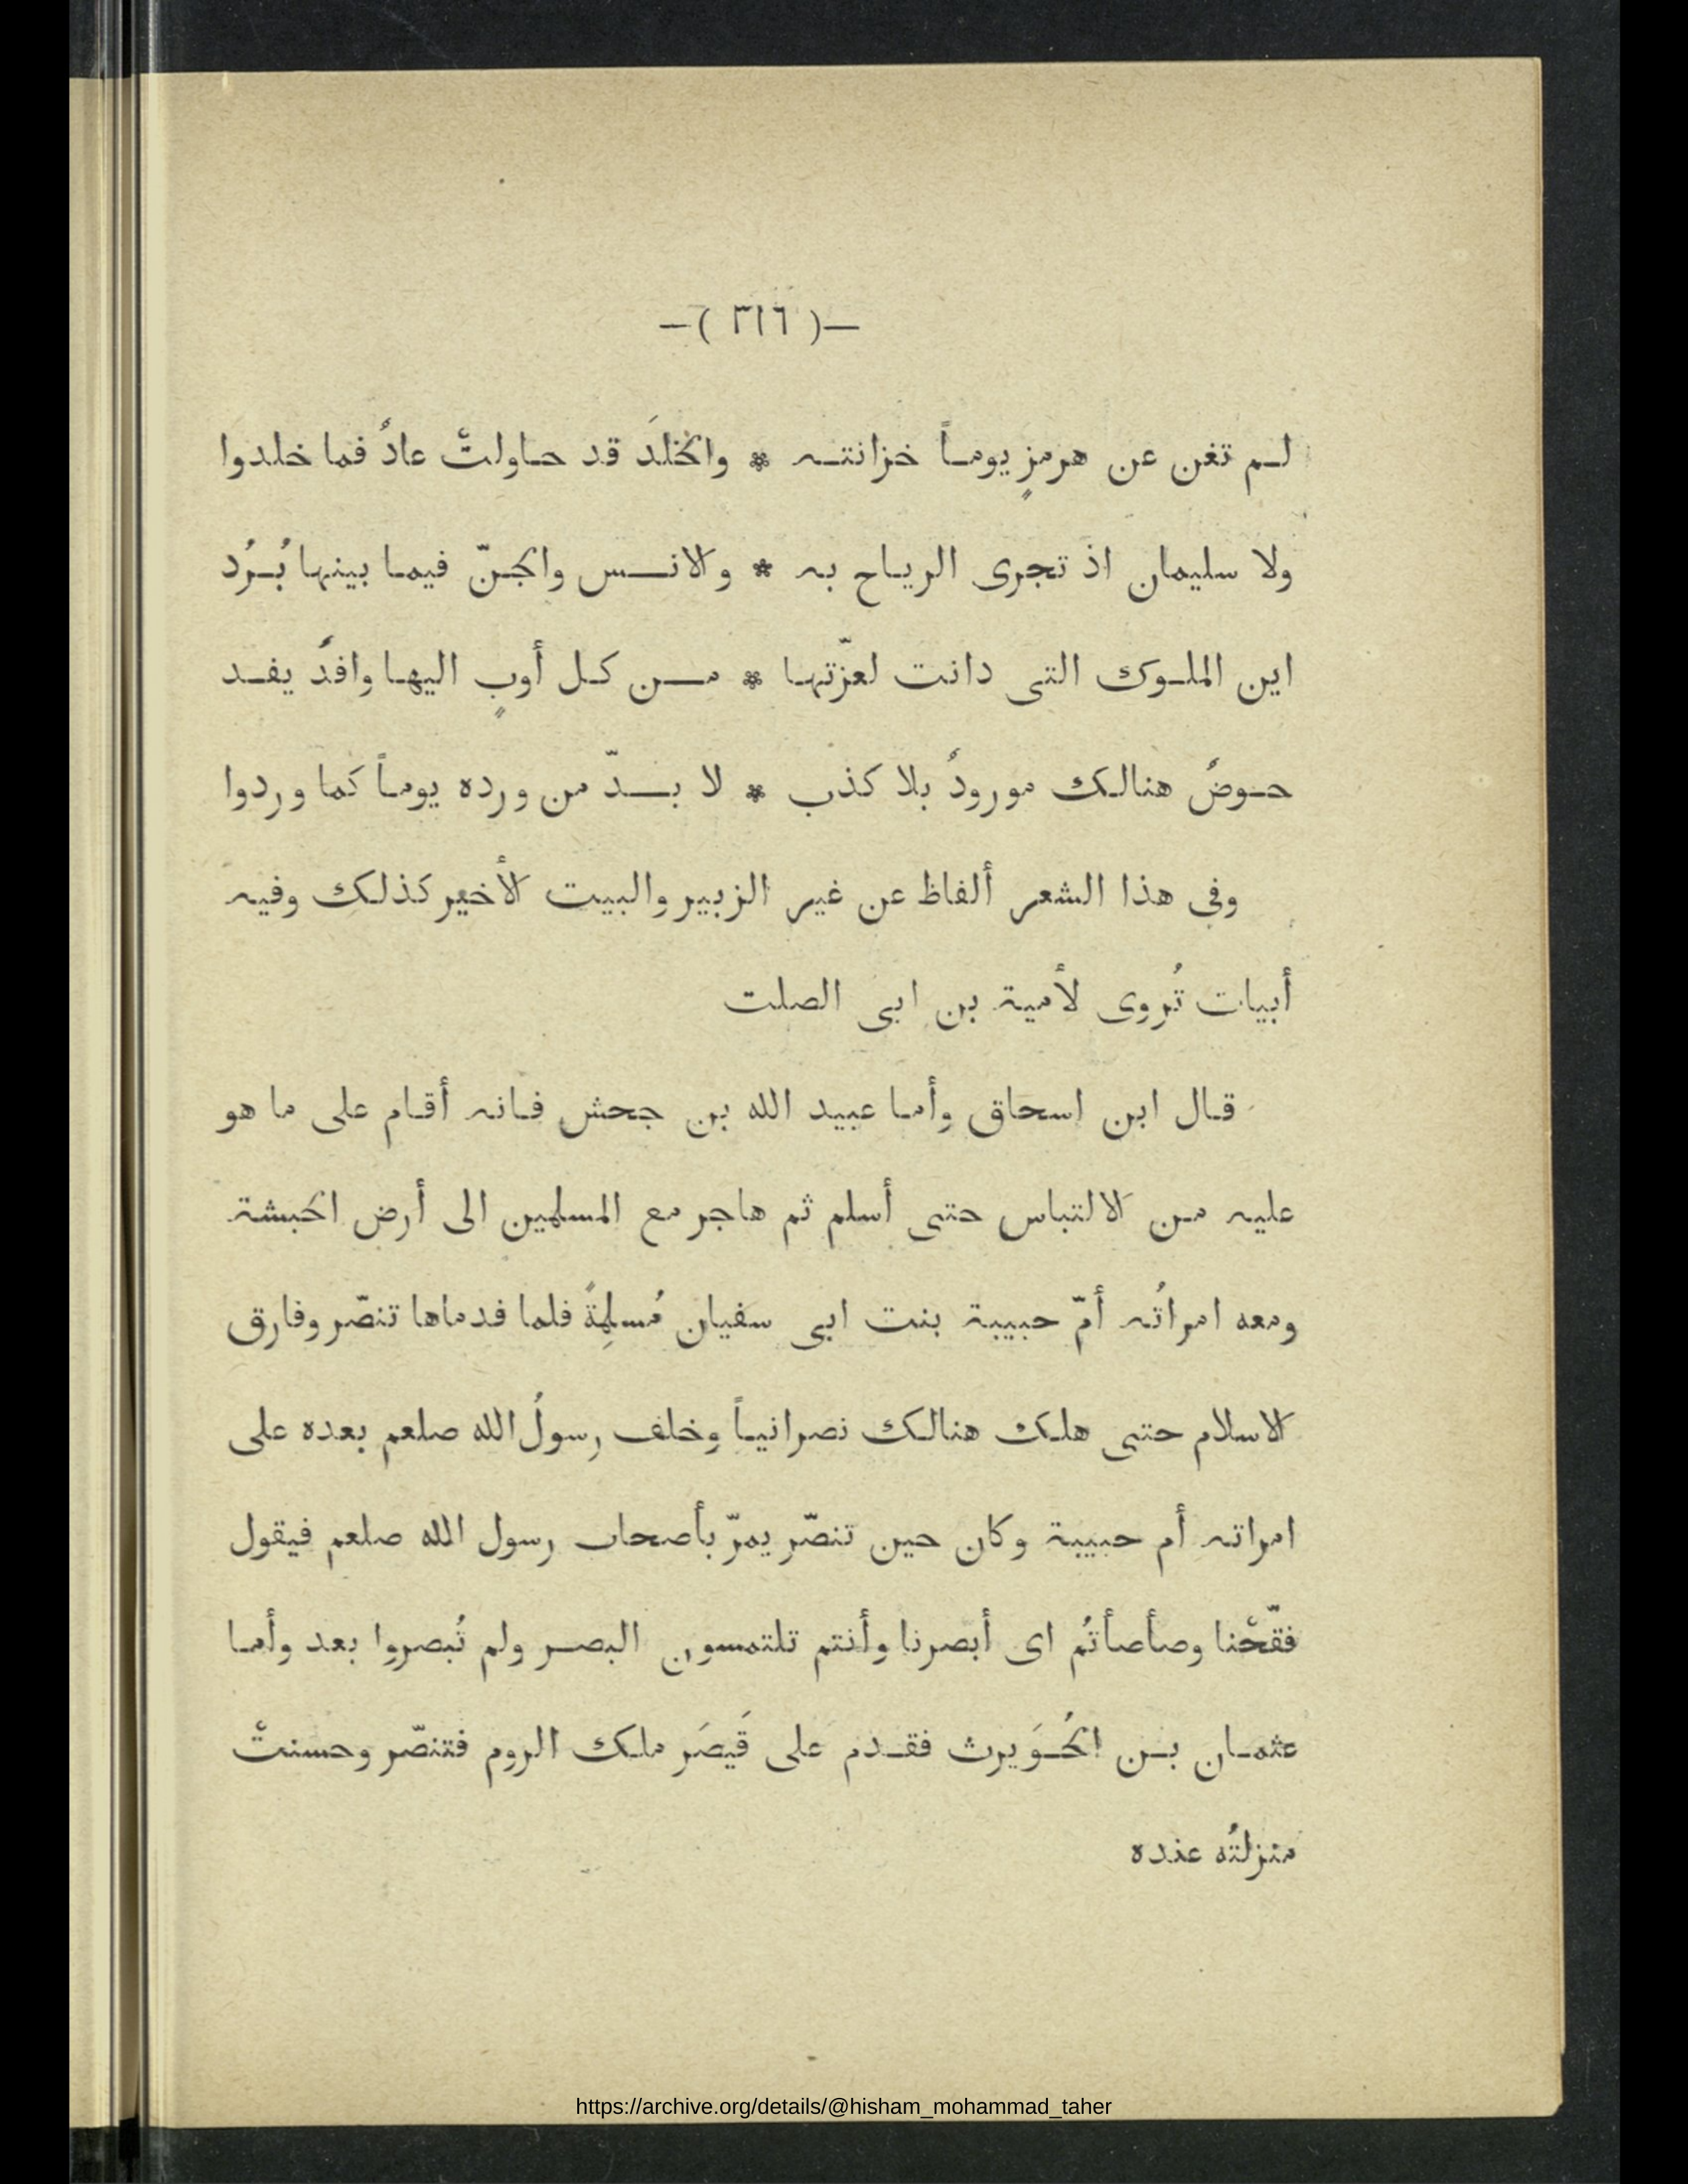 —( ٣١٦ )—
لـم تغن عن هرمزٍ يومـاً خزانتـه * والخلدَ قد حـاولتْ عادٌ فما خلدوا
ولا سليمان اذ تجرى الريـاح به * والانـس والجنّ فيمـا بينها بُـرُد
اين الملـوك التى دانت لعزّتهـا * مـن كـل أوبٍ اليهـا وافدٌ يفـد
حـوضٌ هنالـك مورودٌ بلا كذب * لا بـدّ من ورده يومـاً كما وردوا
وفى هذا الشعر ألفاظ عن غير الزبير والبيت الأخير كذلك وفيه
أبيات تُروى لأمية بن ابى الصلت
قـال ابن اسحاق وأمـا عبيد الله بن جحش فـانه أقـام على ما هو
عليه مـن الالتباس حتى أسلم ثم هاجر مع المسلمين الى أرض الحبشة
ومعه امراتُه أمّ حبيبة بنت ابى سفيان مُسلِمةً فلما قدماها تنصّر وفارق
الاسلام حتى هلـك هنالـك نصرانيـاً وخلف رسولُ الله صلعم بعده على
امراته أم حبيبة وكان حين تنصّر يمرّ بأصحاب رسول الله صلعم فيقول
فقّحْنا وصأصأتُم اى أبصرنا وأنتم تلتمسون البصـر ولم تُبصروا بعد وأمـا
عثمـان بـن الحُـوَيرث فقـدم على قَيصَر ملـك الروم فتنصّر وحسنتْ
منزلتُه عنده
https://archive.org/details/@hisham_mohammad_taher